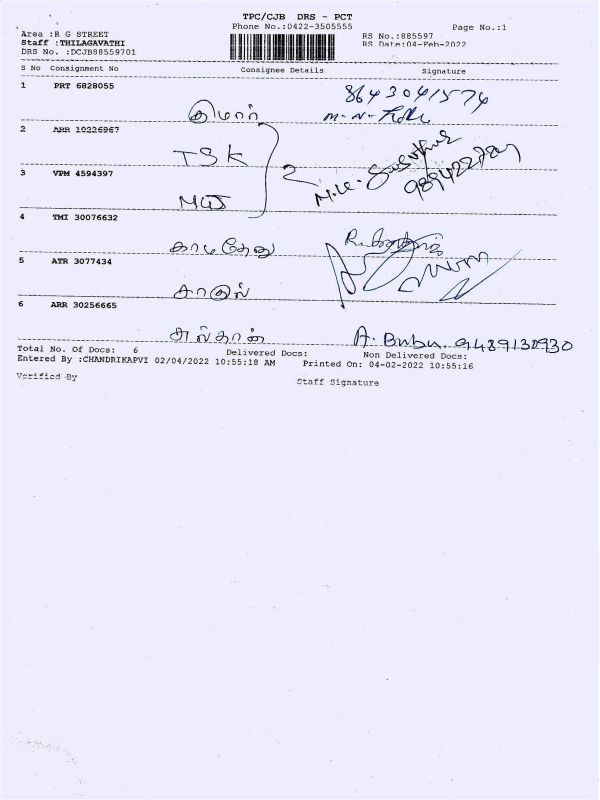 TPC/CJB DRS - PCT
Phone No.:0422-3505555
Page No.:1
Area :R G STREET
RS No.:885597
Staff :THILAGAVATHI
RS Date:04-Feb-2022
DRS No. :DCJB88559701
S No Consignment No Consignee Details Signature
1 PRT 6828055
8643041574
2 ARR 10226967
TSK
2
3 VPM 4594397
4 TMI 30076632
காமதேனு
5 ATR 3077434
6 ARR 30256665
சுல்தான்
A. Babu. 9489130930
Total No. Of Docs: 6 Delivered Docs: Non Delivered Docs:
Entered By :CHANDRIKAPVI 02/04/2022 10:55:18 AM Printed On: 04-02-2022 10:55:16
Verified By
Staff Signature